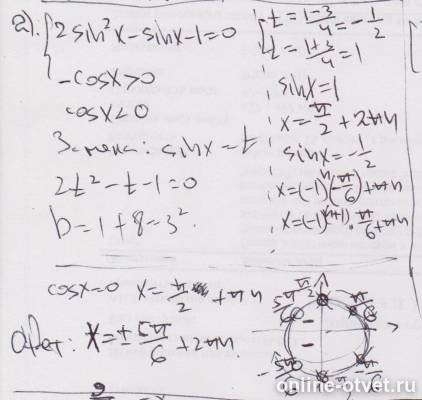 а). { 2sin²x - sinx - 1 = 0
-cosx > 0
cosx < 0
Замена: sinx = t
2t² - t - 1 = 0
D = 1 + 8 = 3².
t = 1-3/4 = -1/2
t = 1+3/4 = 1
sinx = 1
x = π/2 + 2πn
sinx = -1/2
x = (-1)ⁿ(-π/6) + πn
x = (-1)⁽ⁿ⁺¹⁾ · π/6 + πn
cosx = 0 x = π/2 + πn
Ответ: x = ± 5π/6 + 2πn.
π/2
5π/6
π/6
-5π/6
-π/6
online-otvet.ru